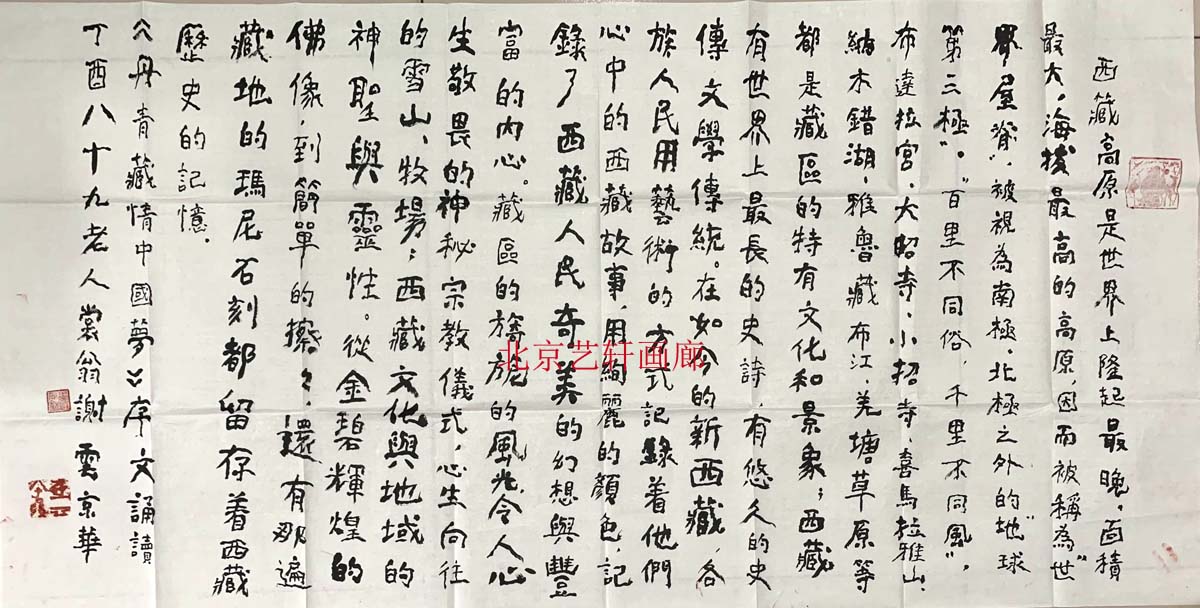 西藏高原是世界上隆起最晚，面積
最大，海拔最高的高原，因而被稱為“世
界屋脊”，被視為南極，北極之外的“地球
第三極”。“百里不同俗，千里不同風”，
布達拉宮，大昭寺，小招寺，喜馬拉雅山，
納木錯湖，雅魯藏布江，羌塘草原等
都是藏區的特有文化和景象；西藏
有世界上最長的史詩，有悠久的史
傳文學傳統。在如今的新西藏，各
族人民用藝術的方式記錄着他們
心中的西藏故事，用絢麗的顏色，記
錄了西藏人民奇美的幻想與豐
富的內心。藏區的旖旎的風光令人心
生敬畏的神秘宗教儀式，心生向往
的雪山、牧場；西藏文化與地域的
神聖與靈性。從金碧輝煌的
佛像，到簡單的擦々，還有那遍
藏地的瑪尼石刻都留存着西藏
歷史的記憶．
《丹青藏情中國夢》序文誦讀
丁酉八十九老人裳翁謝雲京華
北京艺轩画廊